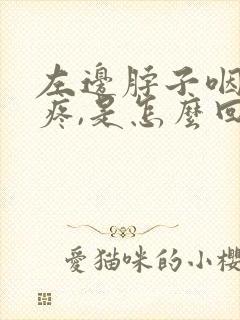 左邊脖子咽
疼,是怎麼回
愛猫咪的小櫻